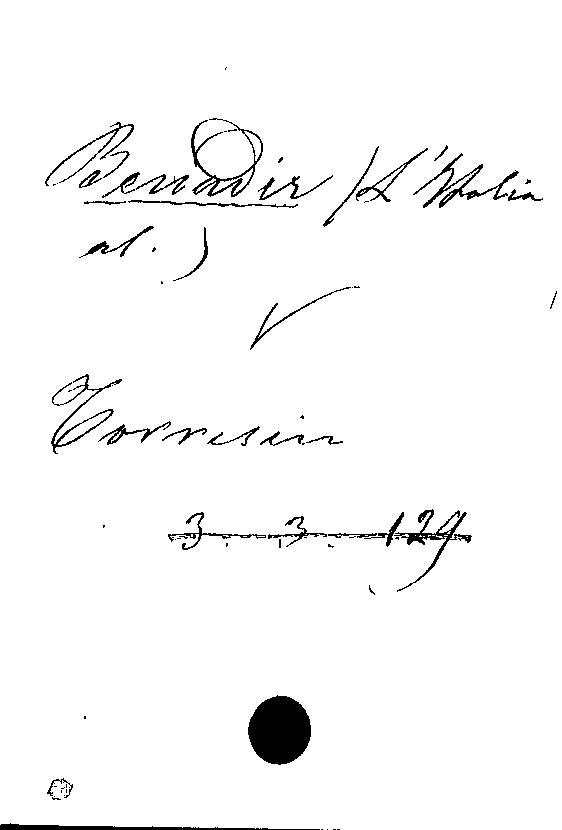 Benadir (L'Italia
al.)
V
Torresin
3. 3. 129